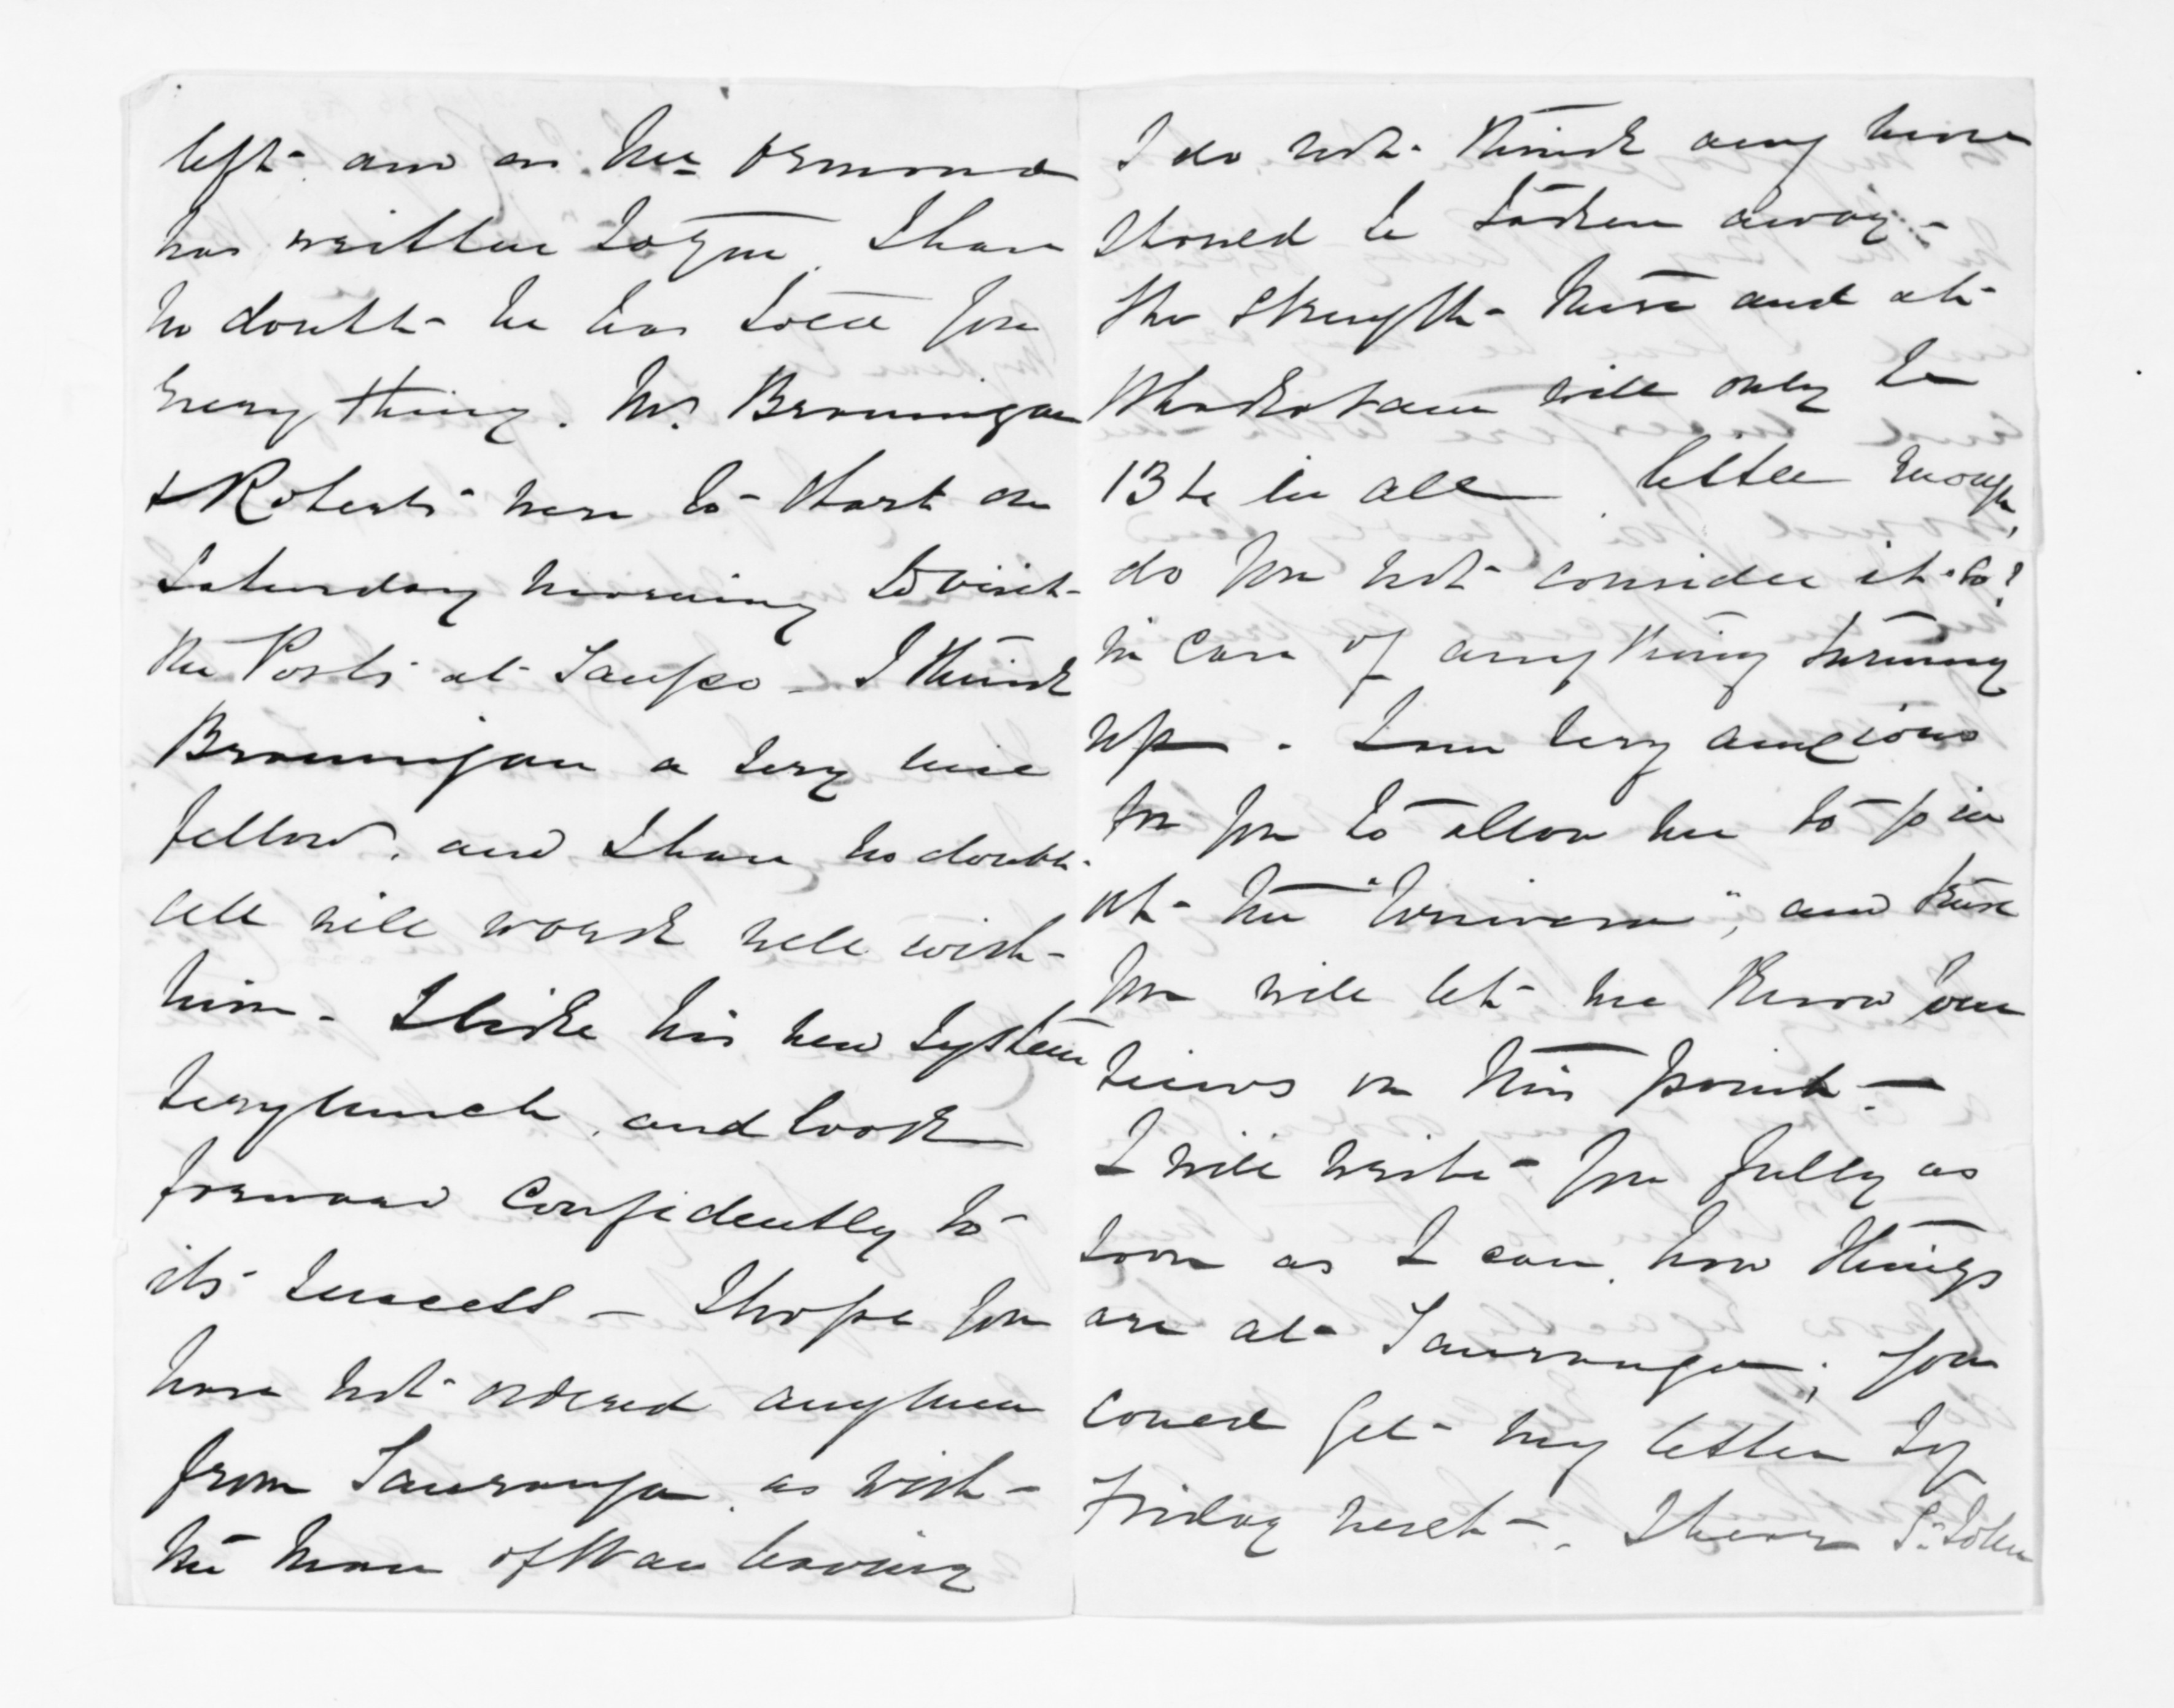 left. and as Mr. Ormond
has written to you I have
no doubt he has told you
every thing. Mr. Brannigan
& Roberts were to start on
Saturday morning to visit
the Posts at Taupo - I think
Brannigan a very nice
fellow, and I have no doubt
all will work well with
him - I like his new system
very much, and look
forward confidently to
its success - I hope you
have not ordered any men
from Tauranga, as with
the Man of War leaving
I do not think any more
should be taken away -
the strength there and at
will only be
13 in all little enough,
do you not consider it so?
in case of anything turning
up. I am very anxious
for you to allow me to
at the " ", and trust
you will let me know your
views on this point -
I will write you fully as
soon as I can, how things
are at Tauranga; you
could get my letter by
Friday next -. I hear St. John